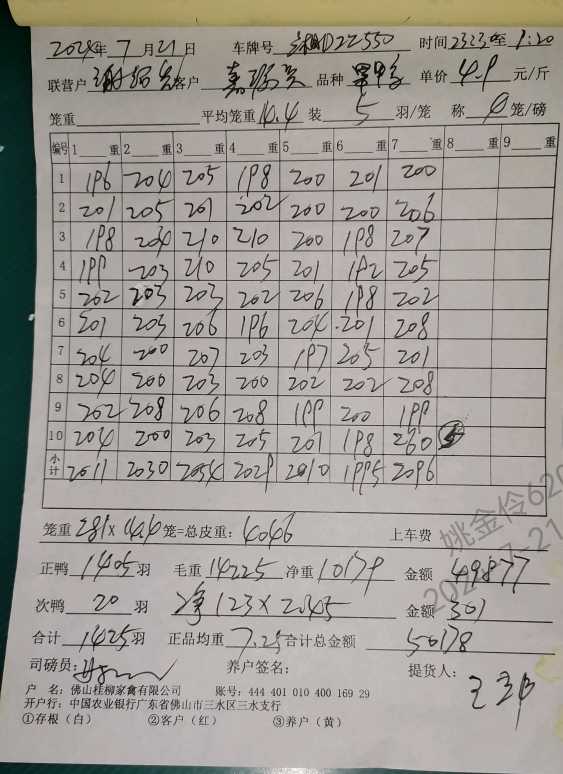 2024年 7 月 21 日 车牌号 湘D22550 时间 2330 至 1:20
联营户 客户 品种 单价 4.9 元/斤
笼重 平均笼重 14.4 装 5 羽/笼 称 4 笼/磅
编号 1 重 2 重 3 重 4 重 5 重 6 重 7 重 8 重 9 重
1 196 204 205 198 200 201 200
2 201 205 201 202 200 200 206
3 198 204 210 210 200 198 207
4 199 203 210 205 201 192 205
5 202 203 203 202 206 198 202
6 201 203 206 196 204 201 208
7 204 200 207 203 197 205 201
8 204 200 203 200 202 202 208
9 202 208 206 208 199 200 199
10 204 200 203 205 201 198 260
小计 2011 2030 2054 2029 2010 1995 2096
笼重 281 × 14.4 笼=总皮重: 4046 上车费
正鸭 1405 羽 毛重 14225 净重 10179 金额 49877
次鸭 20 羽 净 123 × 2.45 金额 301
合计 1425 羽 正品均重 7.25 合计总金额 50178
司磅员: 养户签名: 提货人:
户 名: 佛山桂柳家禽有限公司 账号: 444 401 010 400 169 29
开户行: 中国农业银行广东省佛山市三水区三水支行
①存根（白） ②客户（红） ③养户（黄）
姚金伶620